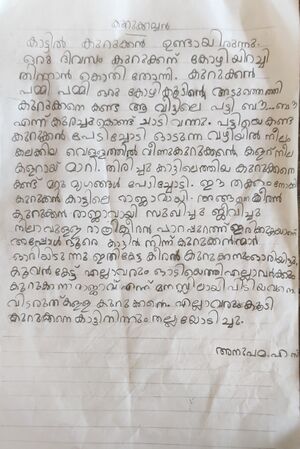 കാട്ടിൽ കുറുക്കൻ ഉണ്ടായിരുന്നു.
ഒരു ദിവസം കുറുക്കന് കോഴിയിറച്ചി
തിന്നാൻ കൊതി തോന്നി. കുറുക്കൻ
പമ്മി പമ്മി ഒരു കോഴി കൂടിന്റെ അടുത്തെത്തി
കുറുക്കനെ കണ്ട ആ വീട്ടിലെ പട്ടി ബൗ-ബൗ
എന്ന് കുരച്ചു കൊണ്ട് ചാടി വന്നു. പട്ടിയെ കണ്ട
കുറുക്കൻ പേടിച്ചോടി ഓടുന്ന വഴിയിൽ നീലം
കലക്കിയ വെള്ളത്തിൽ വീണു കുറുക്കന്റെ കളർ നീല
കളറായി മാറി. തിരിച്ചു കാട്ടിലെത്തിയ കുറുക്കനെ
കണ്ട് മറ്റു മൃഗങ്ങൾ പേടിച്ചോടി. ഈ തക്കം നോക്കി
കുറുക്കൻ കാട്ടിലെ രാജാവായി. അങ്ങനെ
കുറുക്കൻ രാജാവായി സുഖിച്ചു ജീവിച്ചു
നിലാവുള്ള രാത്രികളിൽ പാറപ്പുറത്ത് ഇരിക്കുമ്പോൾ
അപ്പോൾ ദൂരെ കാട്ടിൽ നിന്ന് കുറുക്കന്മാർ
ഓരിയിടുന്നു ഇത് കേട്ട കുറുക്കനും ഓരിയിട്ടു.
കൂവൽ കേട്ട് എല്ലാവരും ഓടിയെത്തി എല്ലാവർക്കും
കുറുക്കനാ രാജാവ് എന്ന് മനസ്സിലായി
എല്ലാവരും കൂടി
കുറുക്കനെ കാട്ടിൽ നിന്നും തല്ലിയോടിച്ചു.
അനുപമ. എസ്